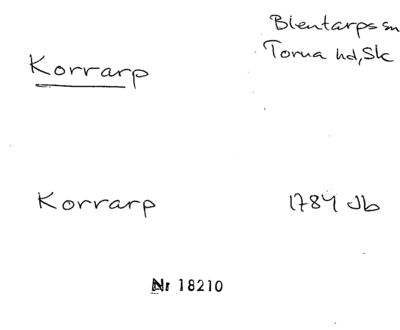 Blentarps sn
Torna hd, Sk
Korrarp
Korrarp 1784 Jb
Nr 18210